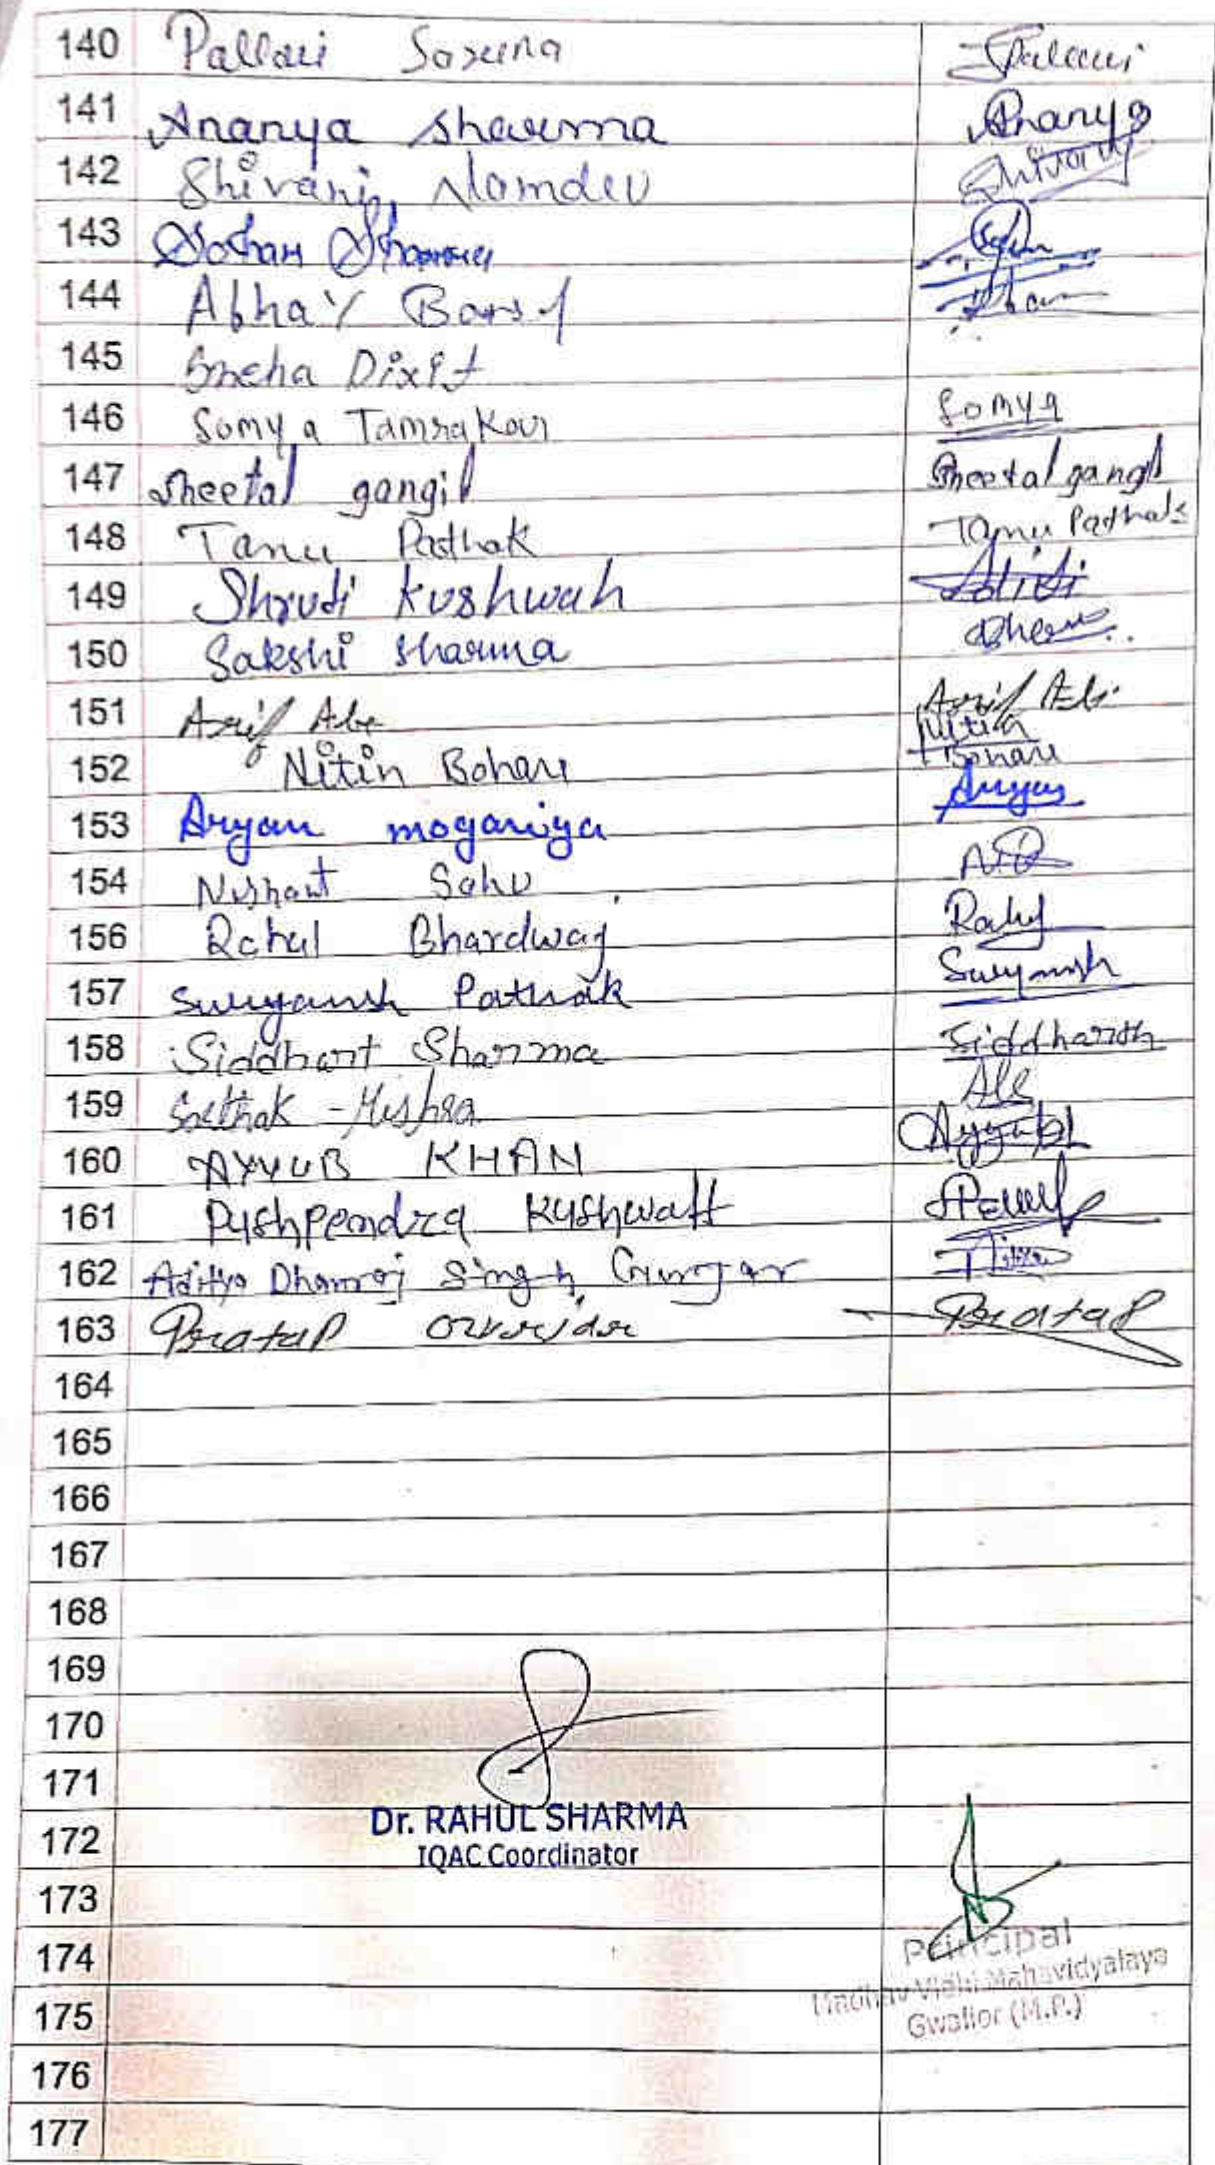 140 Pallavi Saxena Pallavi
141 Ananya Sharma Ananya
142 Shivani Namdev Shivani
143 Sohan Sharma
144 Abhay
145 Sneha Dixit
146 Somya Tamrakar Somya
147 Sheetal gangil Sheetal gangil
148 Tanu Pathak Tanu Pathak
149 Shruti Kushwah
150 Sakshi Sharma
151 Arif Arif
152 Nitin Bohare Nitin Bohare
153 Aryan mogariya Aryan
154 Nishant Sahu
156 Rahul Bhardwaj Rahul
157 Suryansh Pathak Suryansh
158 Siddhart Sharma Siddharth
159 Mishra
160 AYYUB KHAN Ayyub
161 Pushpendra Kushwah
162 Aditya Dhamraj Singh Gurjar
163 Pratap Pratap
164
165
166
167
168
169
170
171
Dr. RAHUL SHARMA
172
IQAC Coordinator
173
174 Principal
Madhav Vidhi Mahavidyalaya
175 Gwalior (M.P.)
176
177